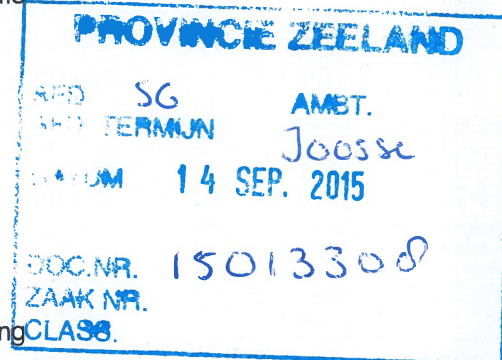 PROVINCIE ZEELAND
AFD SG AMBT.
AFD TERMIJN Joosse
DATUM 14 SEP. 2015
DOC.NR. 15013308
ZAAK NR.
ng CLASS.